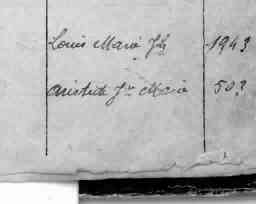 Louis Marie Jh 1943
Aristide Jn Marie 503